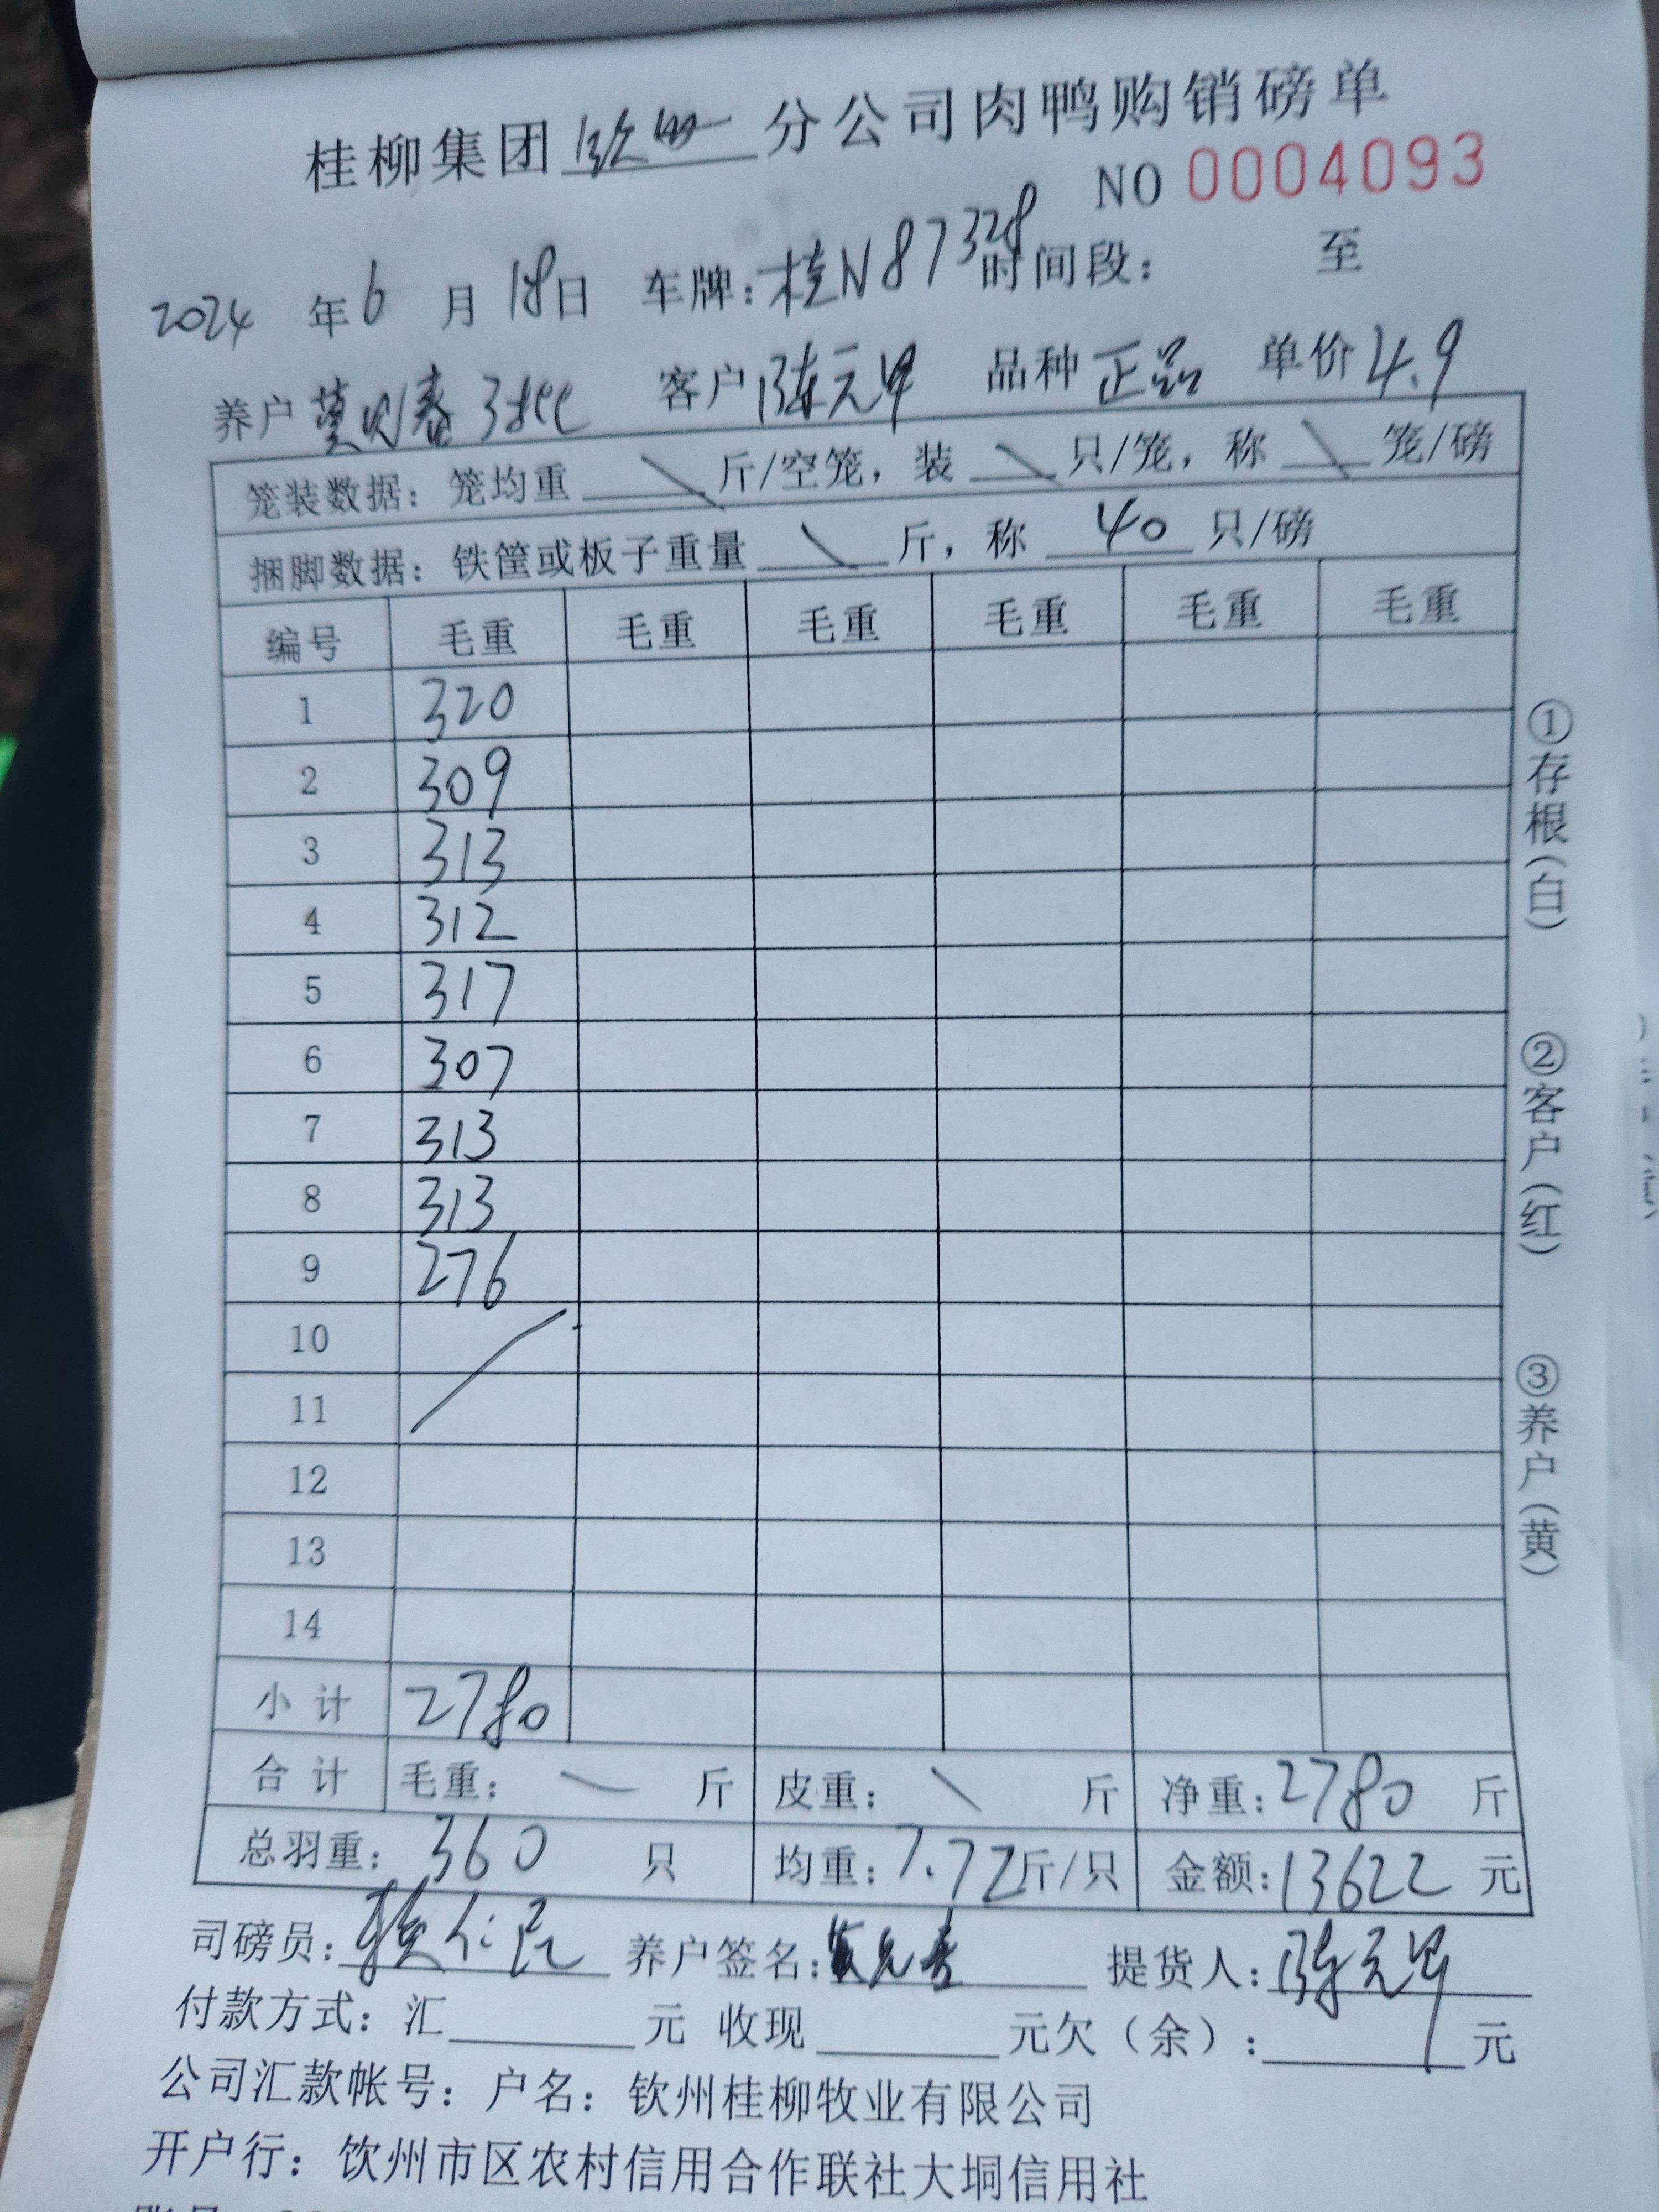 桂柳集团 钦州 分公司肉鸭购销磅单
NO 0004093
2024 年 6 月 18 日 车牌：桂N87328 时间段： 至
养户 客户 陈元 品种 正品 单价 4.9
笼装数据：笼均重 \ 斤/空笼，装 \ 只/笼，称 \ 笼/磅
捆脚数据：铁筐或板子重量 \ 斤，称 40 只/磅
编号 毛重 毛重 毛重 毛重 毛重 毛重
1 320
2 309
3 313
4 312
5 317
6 307
7 313
8 313
9 276
10
11
12
13
14
小计 2780
合计 毛重： — 斤 皮重： \ 斤 净重：2780 斤
总羽重：360 只 均重：7.72斤/只 金额：13622 元
司磅员： 养户签名： 提货人：陈元
付款方式：汇 元 收现 元欠（余）： 元
公司汇款帐号：户名：钦州桂柳牧业有限公司
开户行：钦州市区农村信用合作联社大垌信用社
①存根（白）
②客户（红）
③养户（黄）